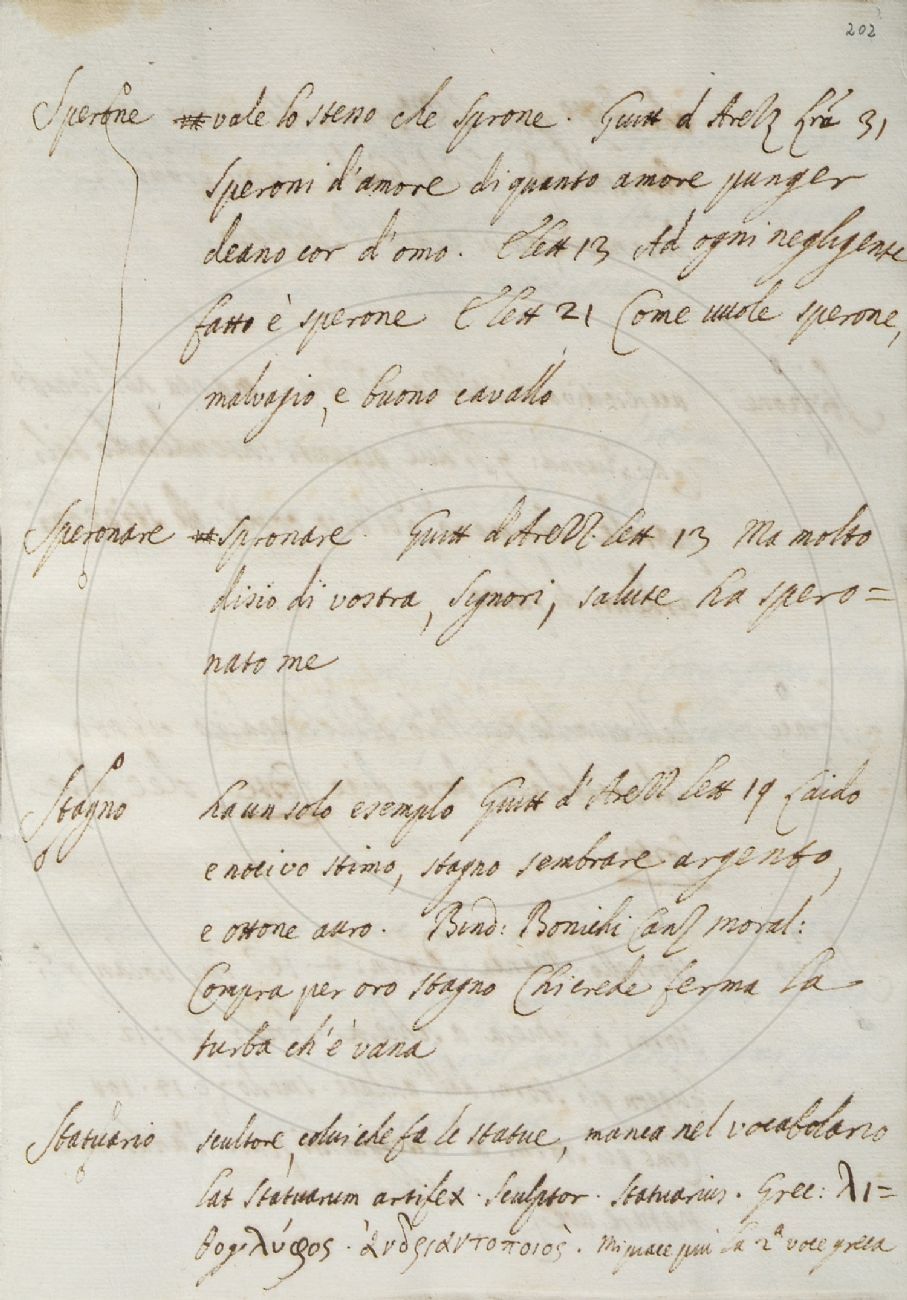 202
Sperone vale lo stesso che sprone. Guitt d'Arezz lra 31
speroni d'amore di quanto amore punger
deano cor d'omo. E lett 13 Ad ogni negligente
fatto è sperone E lett 21 Come vuole sperone,
malvagio, e buono cavallo
Speronare spronare. Guitt d'Arezz. lett 13 Ma molto
disio di vostra, Signori, salute ha spero=
nato me
Stagno ha un solo esemplo Guitt d'Arezz lett 19 Laido
e nocivo stimo, stagno sembrare argento,
e ottone auro. Bind: Bonichi Canz moral:
Compra per oro stagno Chi crede ferma la
turba ch'è vana
Statuario scultore, colui che fa le statue, manca nel vocabolario
Lat statuarum artifex. sculptor. statuarius. Grec: λι=
θογλύφος. ἀνδριαντοποιὸς. Mi piace piu la 2ª voce greca